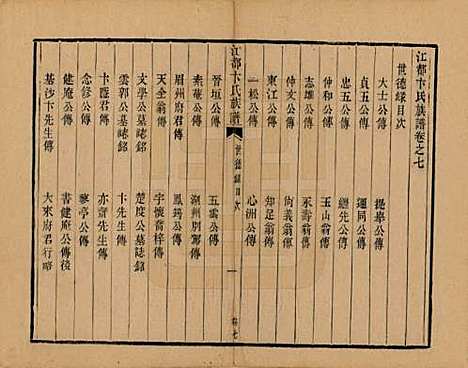 江都卞氏族譜卷之七
世德錄目次
大士公傳 提舉公傳
貞五公傳 運同公傳
忠五公傳 繼先公傳
仲和公傳 玉山翁傳
志雄公傳 永壽翁傳
仲文公傳 尚義翁傳
東江公傳 知足翁傳
一松公傳 心洲公傳
江都卞氏族譜 世德錄目次 一 卷七
晉垣公傳 五雲公傳
素菴公傳 湖州別駕傳
眉州府君傳 鳳鍔公傳
天全翁傳 宇懷裔梓傳
文學公墓誌銘 楚庭公墓誌銘
雲郭公墓誌銘 卞先生傳
卞匯君傳 亦齋先生傳
念修公傳 寥亭公傳
健菴公傳 書健菴公傳後
基沙卞先生傳 大來府君行略